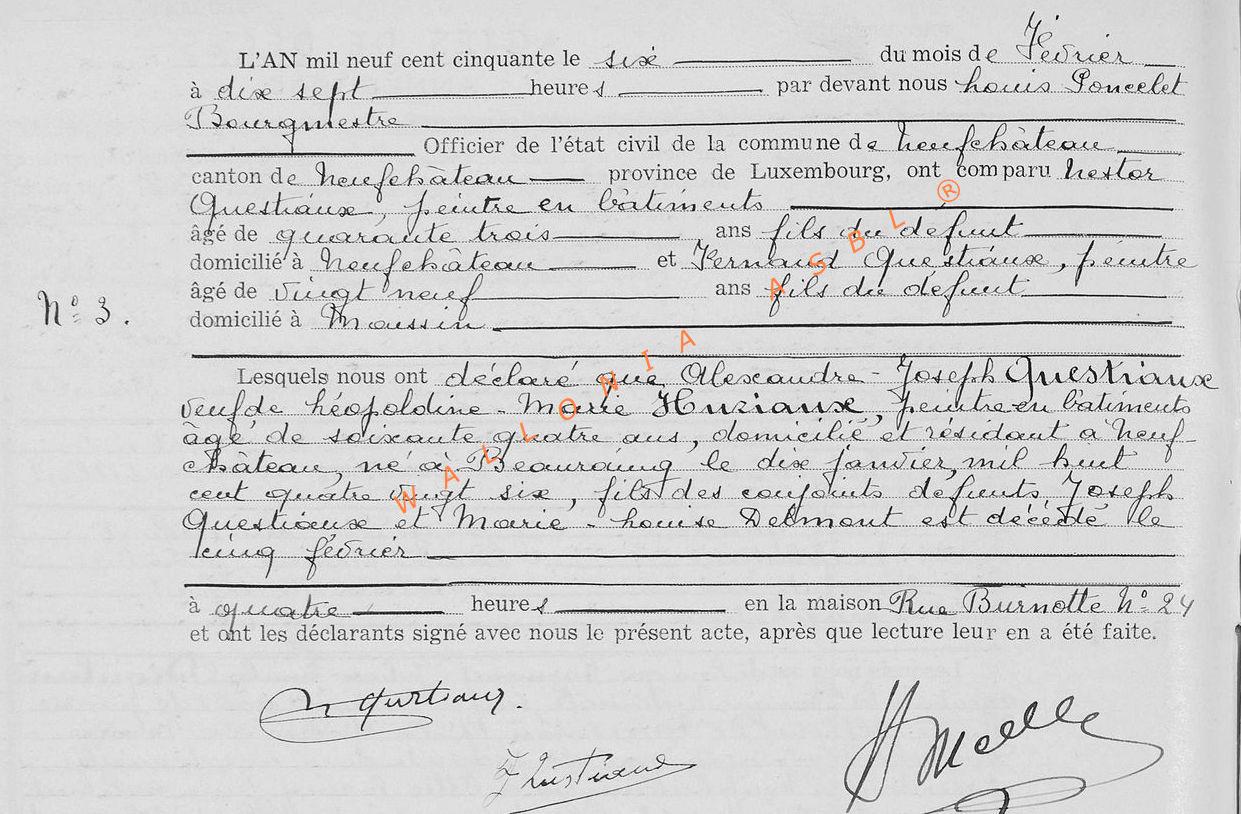 L'AN mil neuf cent cinquante le six du mois de Février
à dix sept heures par devant nous Louis Poncelet
Bourgmestre
Officier de l'état civil de la commune de Neufchâteau
canton de Neufchâteau province de Luxembourg, ont comparu Nestor
Questiaux, peintre en bâtiments
âgé de quarante trois ans fils du défunt
domicilié à Neufchâteau et Fernand Questiaux, peintre
âgé de vingt neuf ans fils du défunt
N° 3.
domicilié à Moussin
Lesquels nous ont déclaré que Alexandre-Joseph Questiaux
veuf de Léopoldine-Marie Huziaux, peintre en bâtiments
âgé de soixante quatre ans, domicilié et résidant à Neuf-
château, né à Beauraing le dix janvier mil huit
cent quatre vingt six, fils des conjoints défunts Joseph
Questiaux et Marie-Louise Delmont est décédé le
cinq février
à quatre heures en la maison Rue Burnotte N° 24
et ont les déclarants signé avec nous le présent acte, après que lecture leur en a été faite.
N Questiaux.
F Questiaux
WALLONIA ASBL ®